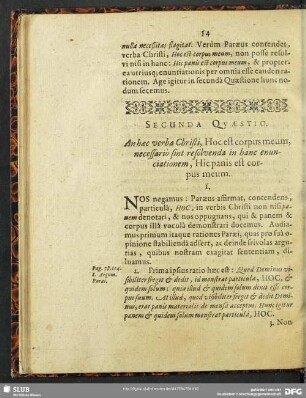 54
nulla necessitas flagitat. Verùm Paræus contendet,
verba Christi, Hoc est corpus meum, non posse resol-
vi nisi in hanc: Hic panis est corpus meum, & propter-
ea utriusq; enuntiationis per omnia esse eandem ra-
tionem. Age igitur in secundâ Quæstione hunc no-
dum secemus.
SECUNDA QVÆSTIO.
An hæc verba Christi, Hoc est corpus meum,
necessariò sint resolvenda in hanc enun-
ciationem, Hic panis est cor-
pus meum.
I.
NOS negamus: Paræus affirmat, contendens,
particulâ, HOC, in verbis Christi non nisi pa-
nem denotari, & nos oppugnans, qui & panem &
corpus illâ voculâ demonstrari docemus. Audia-
mus primum itaque rationes Paræi, quas pro suâ o-
pinione stabiliendâ affert, ac deinde frivolas argu-
tias, quibus nostram exagitat sententiam, di-
luamus.
Pag. 78.114.
1. Argum.
Paræi.
2. Prima ipsius ratio hæc est: Quod Dominus vi-
sibiliter fregit & dedit, id monstrat particula, HOC, &
quidem solum: quia illud & quidem solum dixit esse cor-
pus suum. At illud, quod visibiliter fregit & dedit Domi-
nus, erat panis materialis de mensâ acceptus. Hunc igitur
panem & quidem solum monstrat particula, HOC.
3. Non
SLUB
Wir führen Wissen.
DFG